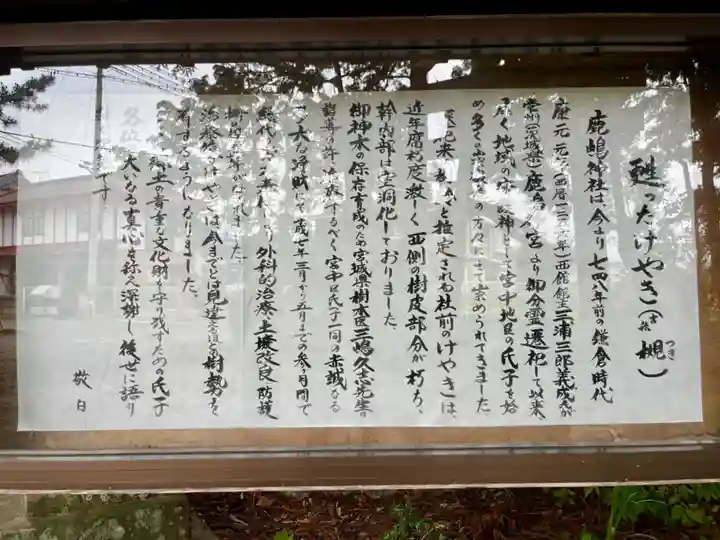 甦ったけやき（古名 槻）
つき
鹿嶋神社は今より七四八年前の鎌倉時代
康元元年（西暦一二五六年）西館館主三浦三郎義成が
常州（茨城県）鹿島 宮より御分霊遷祀して以来、
広く地域の 神として宮中地区の氏子を始
め多くの 々の方々によって崇められてきました。
遷祀来 と推定される社前のけやきは、
近年腐朽度激しく西側の樹皮部分が朽ち、
幹内部は空洞化しておりました。
御神木の保存育成のため宮城県樹木医三嶋久志先生の
指導の 治療するべく宮中区氏子一同の赤誠なる
大な浄財にて 成七年三月から五月までの参ヶ月間で
総代 外科的治療、土壌改良、防護
柵
治療 のけやきは今までとは見違えるほど樹勢を
有するようになりました。
郷土の貴重な文化財を守り残すための氏子
各位 大いなる真心を称え深謝し後世に語り
ます
敬白